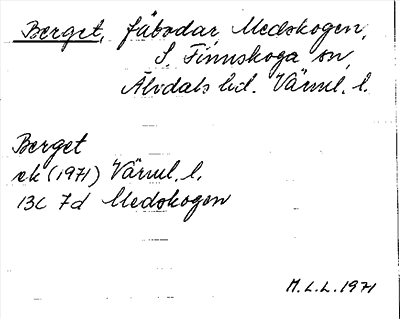 Berget, fäbodar, Medskogen,
S. Finnskoga sn,
Älvdals hd. Värml. l.
Berget
ek (1971) Värml. l.
13C 7d Medskogen
M.L.L. 1971